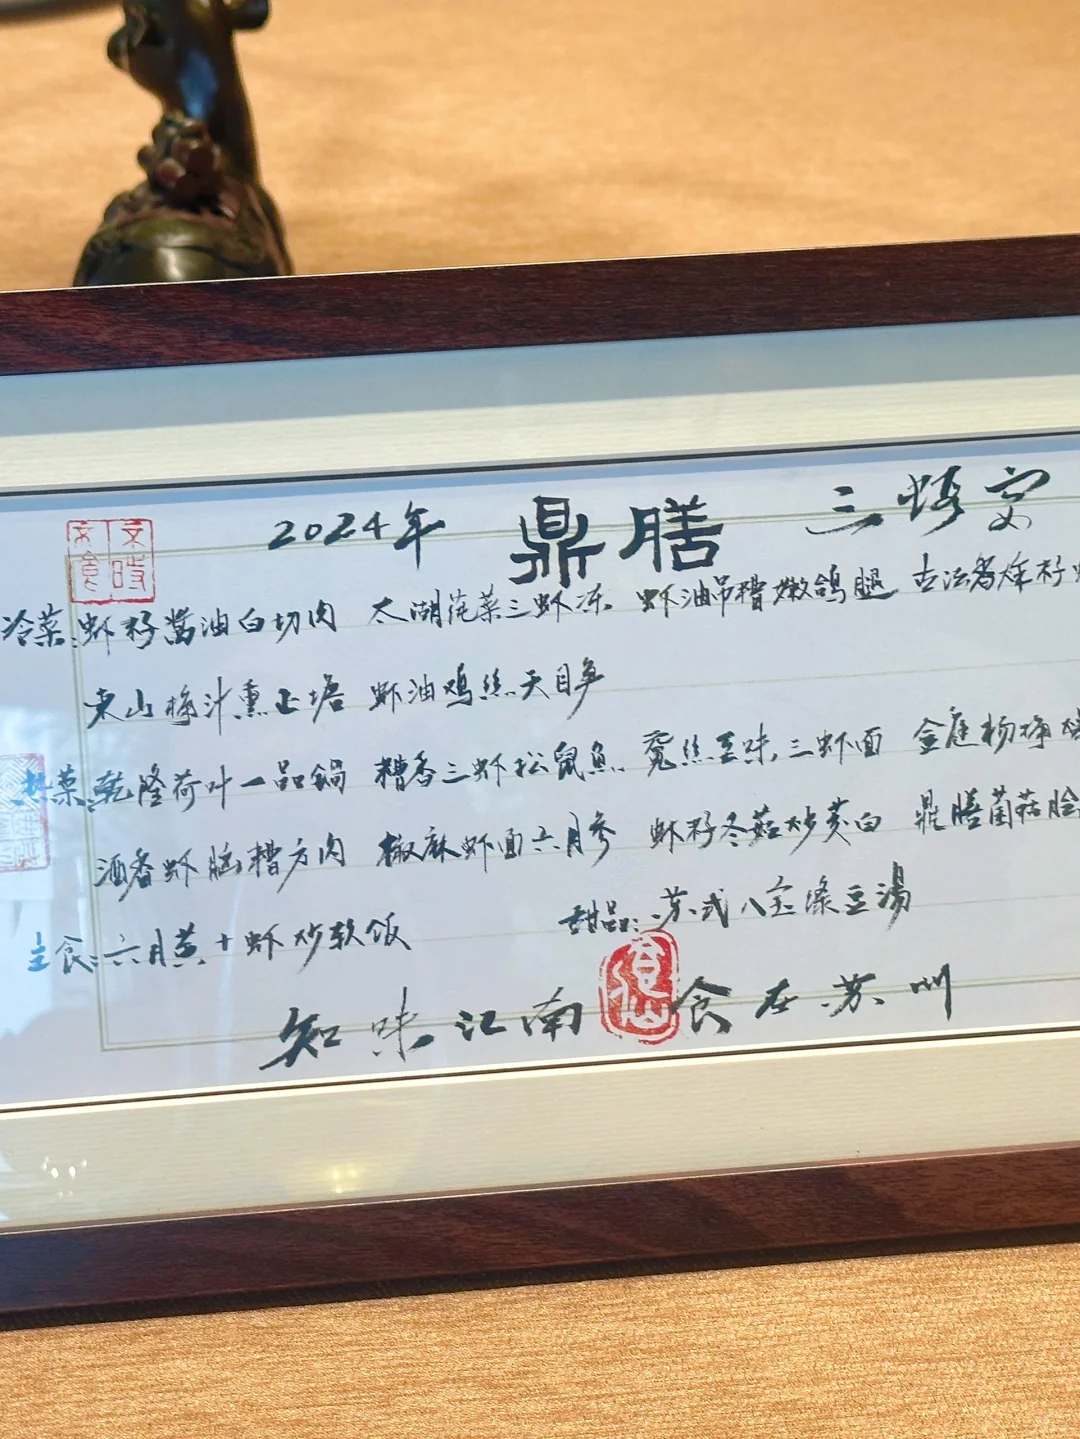 2024年 鼎膳 三虾宴
冷菜:虾籽酱油白切肉 太湖莼菜三虾冻 虾油吊糟嫩鸽腿 古法 籽
东山梅汁熏上塘 虾油鸡丝天目笋
热菜:乾隆荷叶一品锅 糟香三虾松鼠鱼 三虾面 金庭杨梅
酒香虾脑糟方肉 椒麻虾面六月参 虾籽冬菇炒茭白 鼎膳菌菇
主食:六月黄十虾炒软饭 甜品:苏式八宝绿豆湯
知味江南 食在苏州